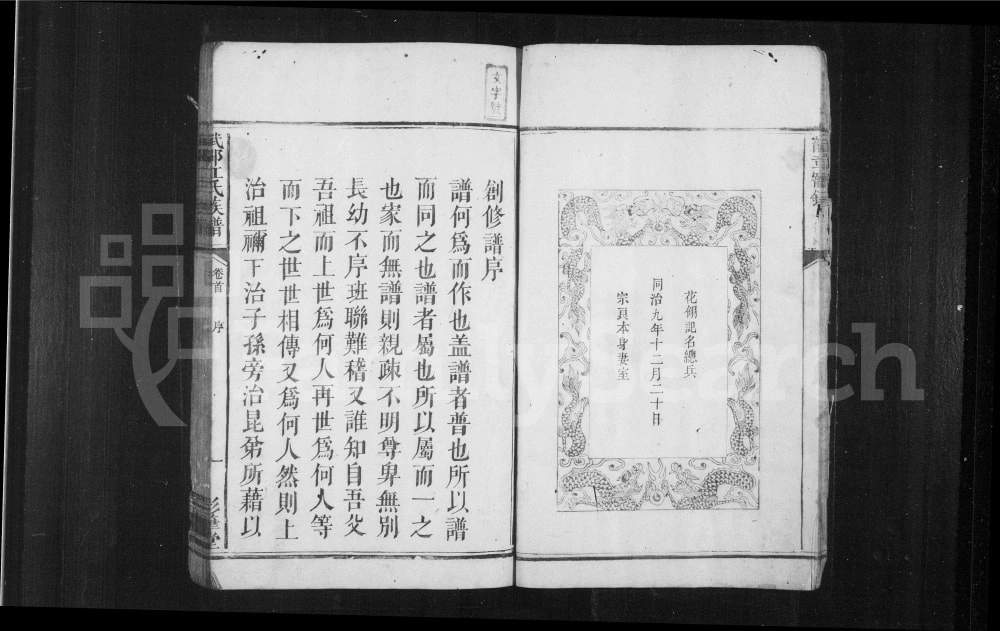 花翎記名總兵
同治九年十二月二十日
宗良本身妻室
文字號
創修譜序
譜何爲而作也盖譜者普也所以譜
而同之也譜者屬也所以屬而一之
也家而無譜則親疎不明尊卑無別
長幼不序班聯難稽又誰知自吾父
吾祖而上世爲何人再世爲何人等
而下之世世相傳又爲何人然則上
治祖禰下治子孫旁治昆弟所藉以
武邵江氏族譜
卷首
序
一
堂